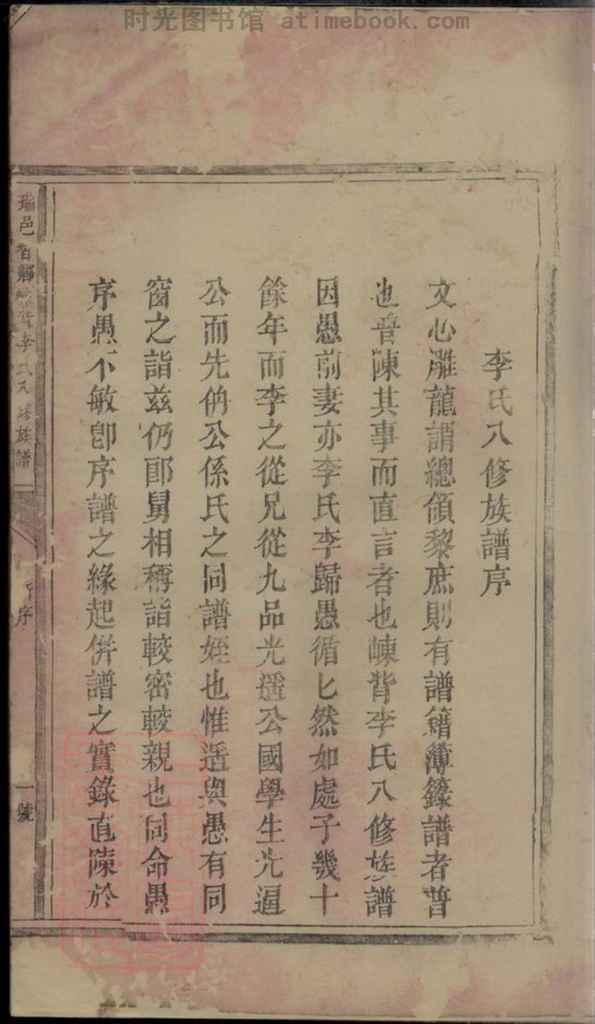 时光图书馆 atimebook.com
李氏八修族譜序
文心雕龍謂總領黎庶則有譜籍簿錄譜者普
也普陳其事而直言者也崠背李氏八修族譜
因愚前妻亦李氏李歸愚循匕然如處子幾十
餘年而李之從兄從九品光遥公國學生光逼
公而先的公係氏之同譜姪也惟适與愚有同
窗之誼兹仍郎舅相稱誼較密較親也同命愚
序愚不敏卽序譜之緣起併譜之實錄直陳於
邑 李氏八修族譜
序
一號